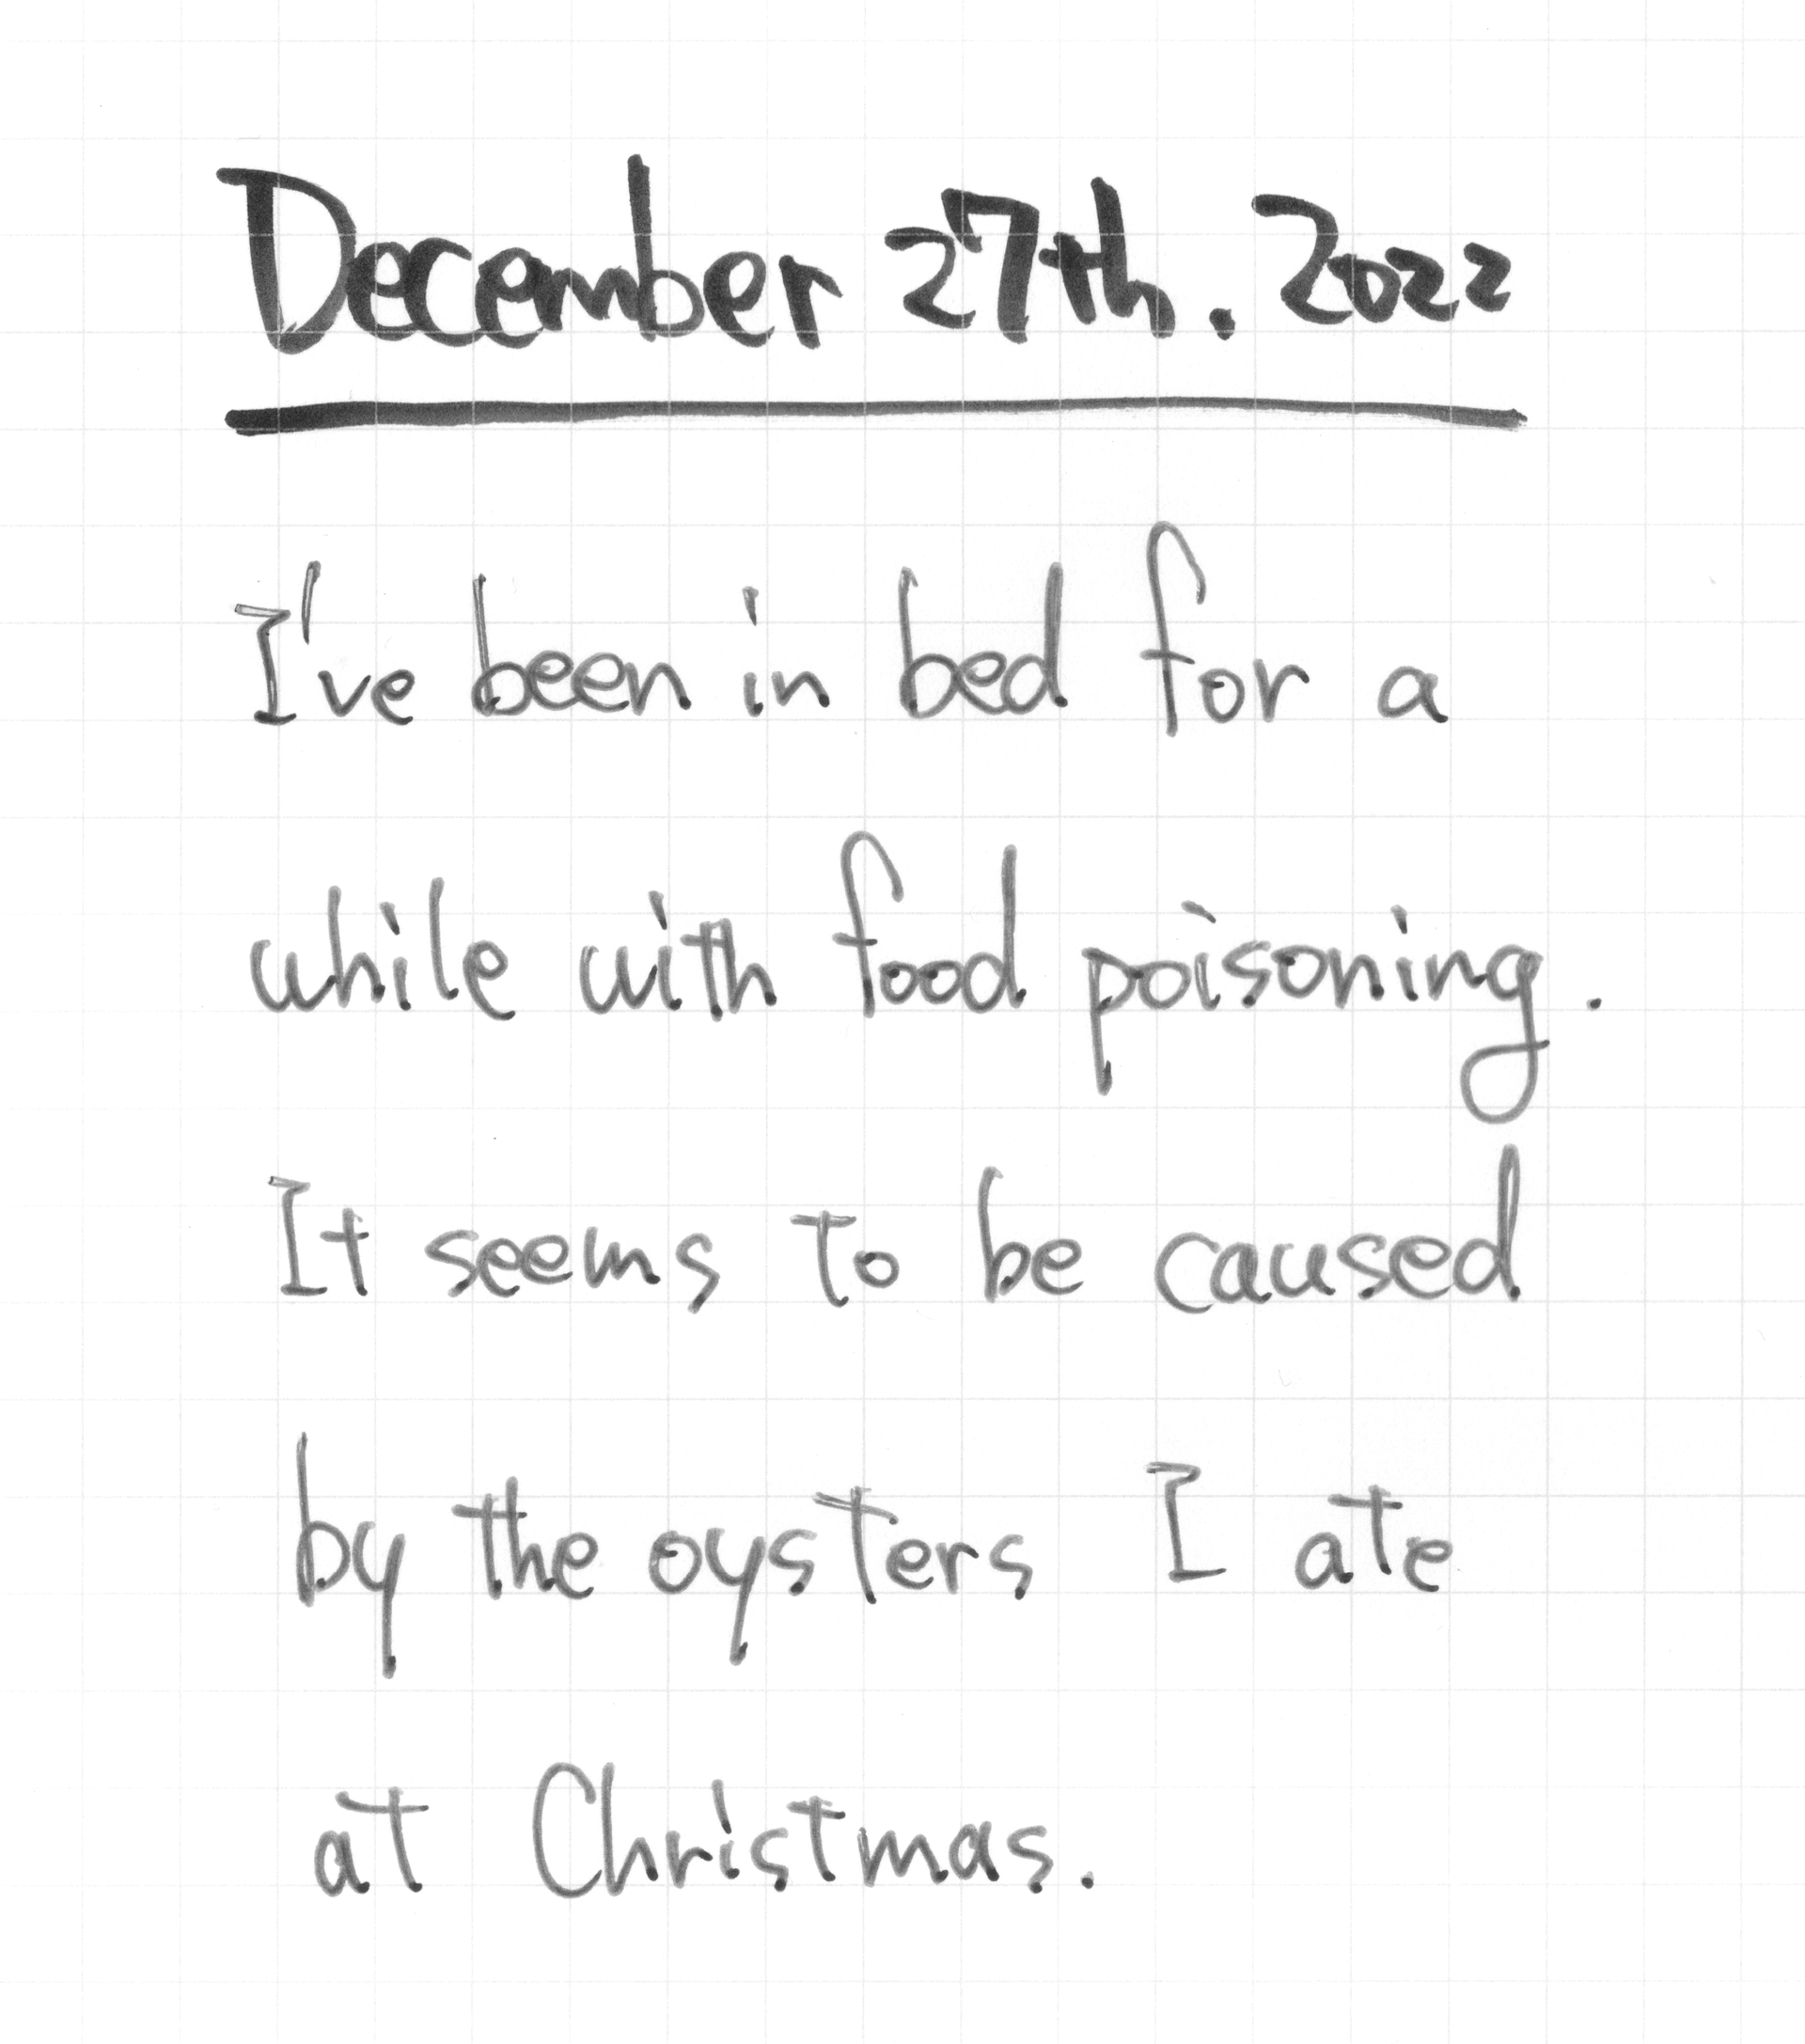 December 27th. 2022
I've been in bed for a
while with food poisoning.
It seems to be caused
by the oysters I ate
at Christmas.